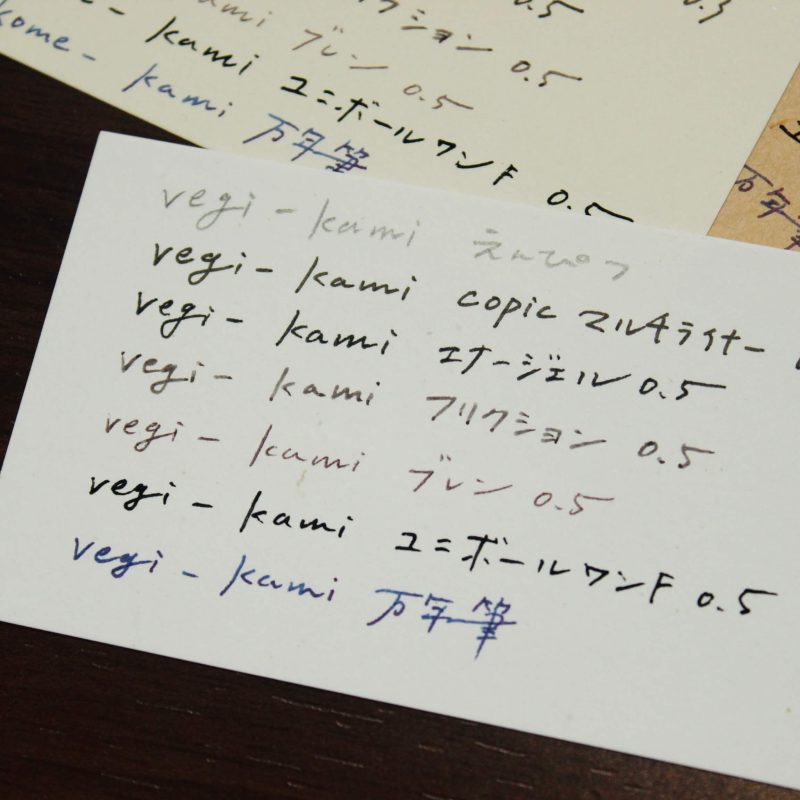 クション 0.5
kami ブレン 0.5
kami ユニボールワンF 0.5
kome- kami 万年筆
万年筆
vegi-kami えんぴつ
vegi-kami copic マルチライナー
vegi-kami エナージェル 0.5
vegi-kami フリクション 0.5
vegi-kami ブレン 0.5
vegi-kami ユニボールワンF 0.5
vegi-kami 万年筆